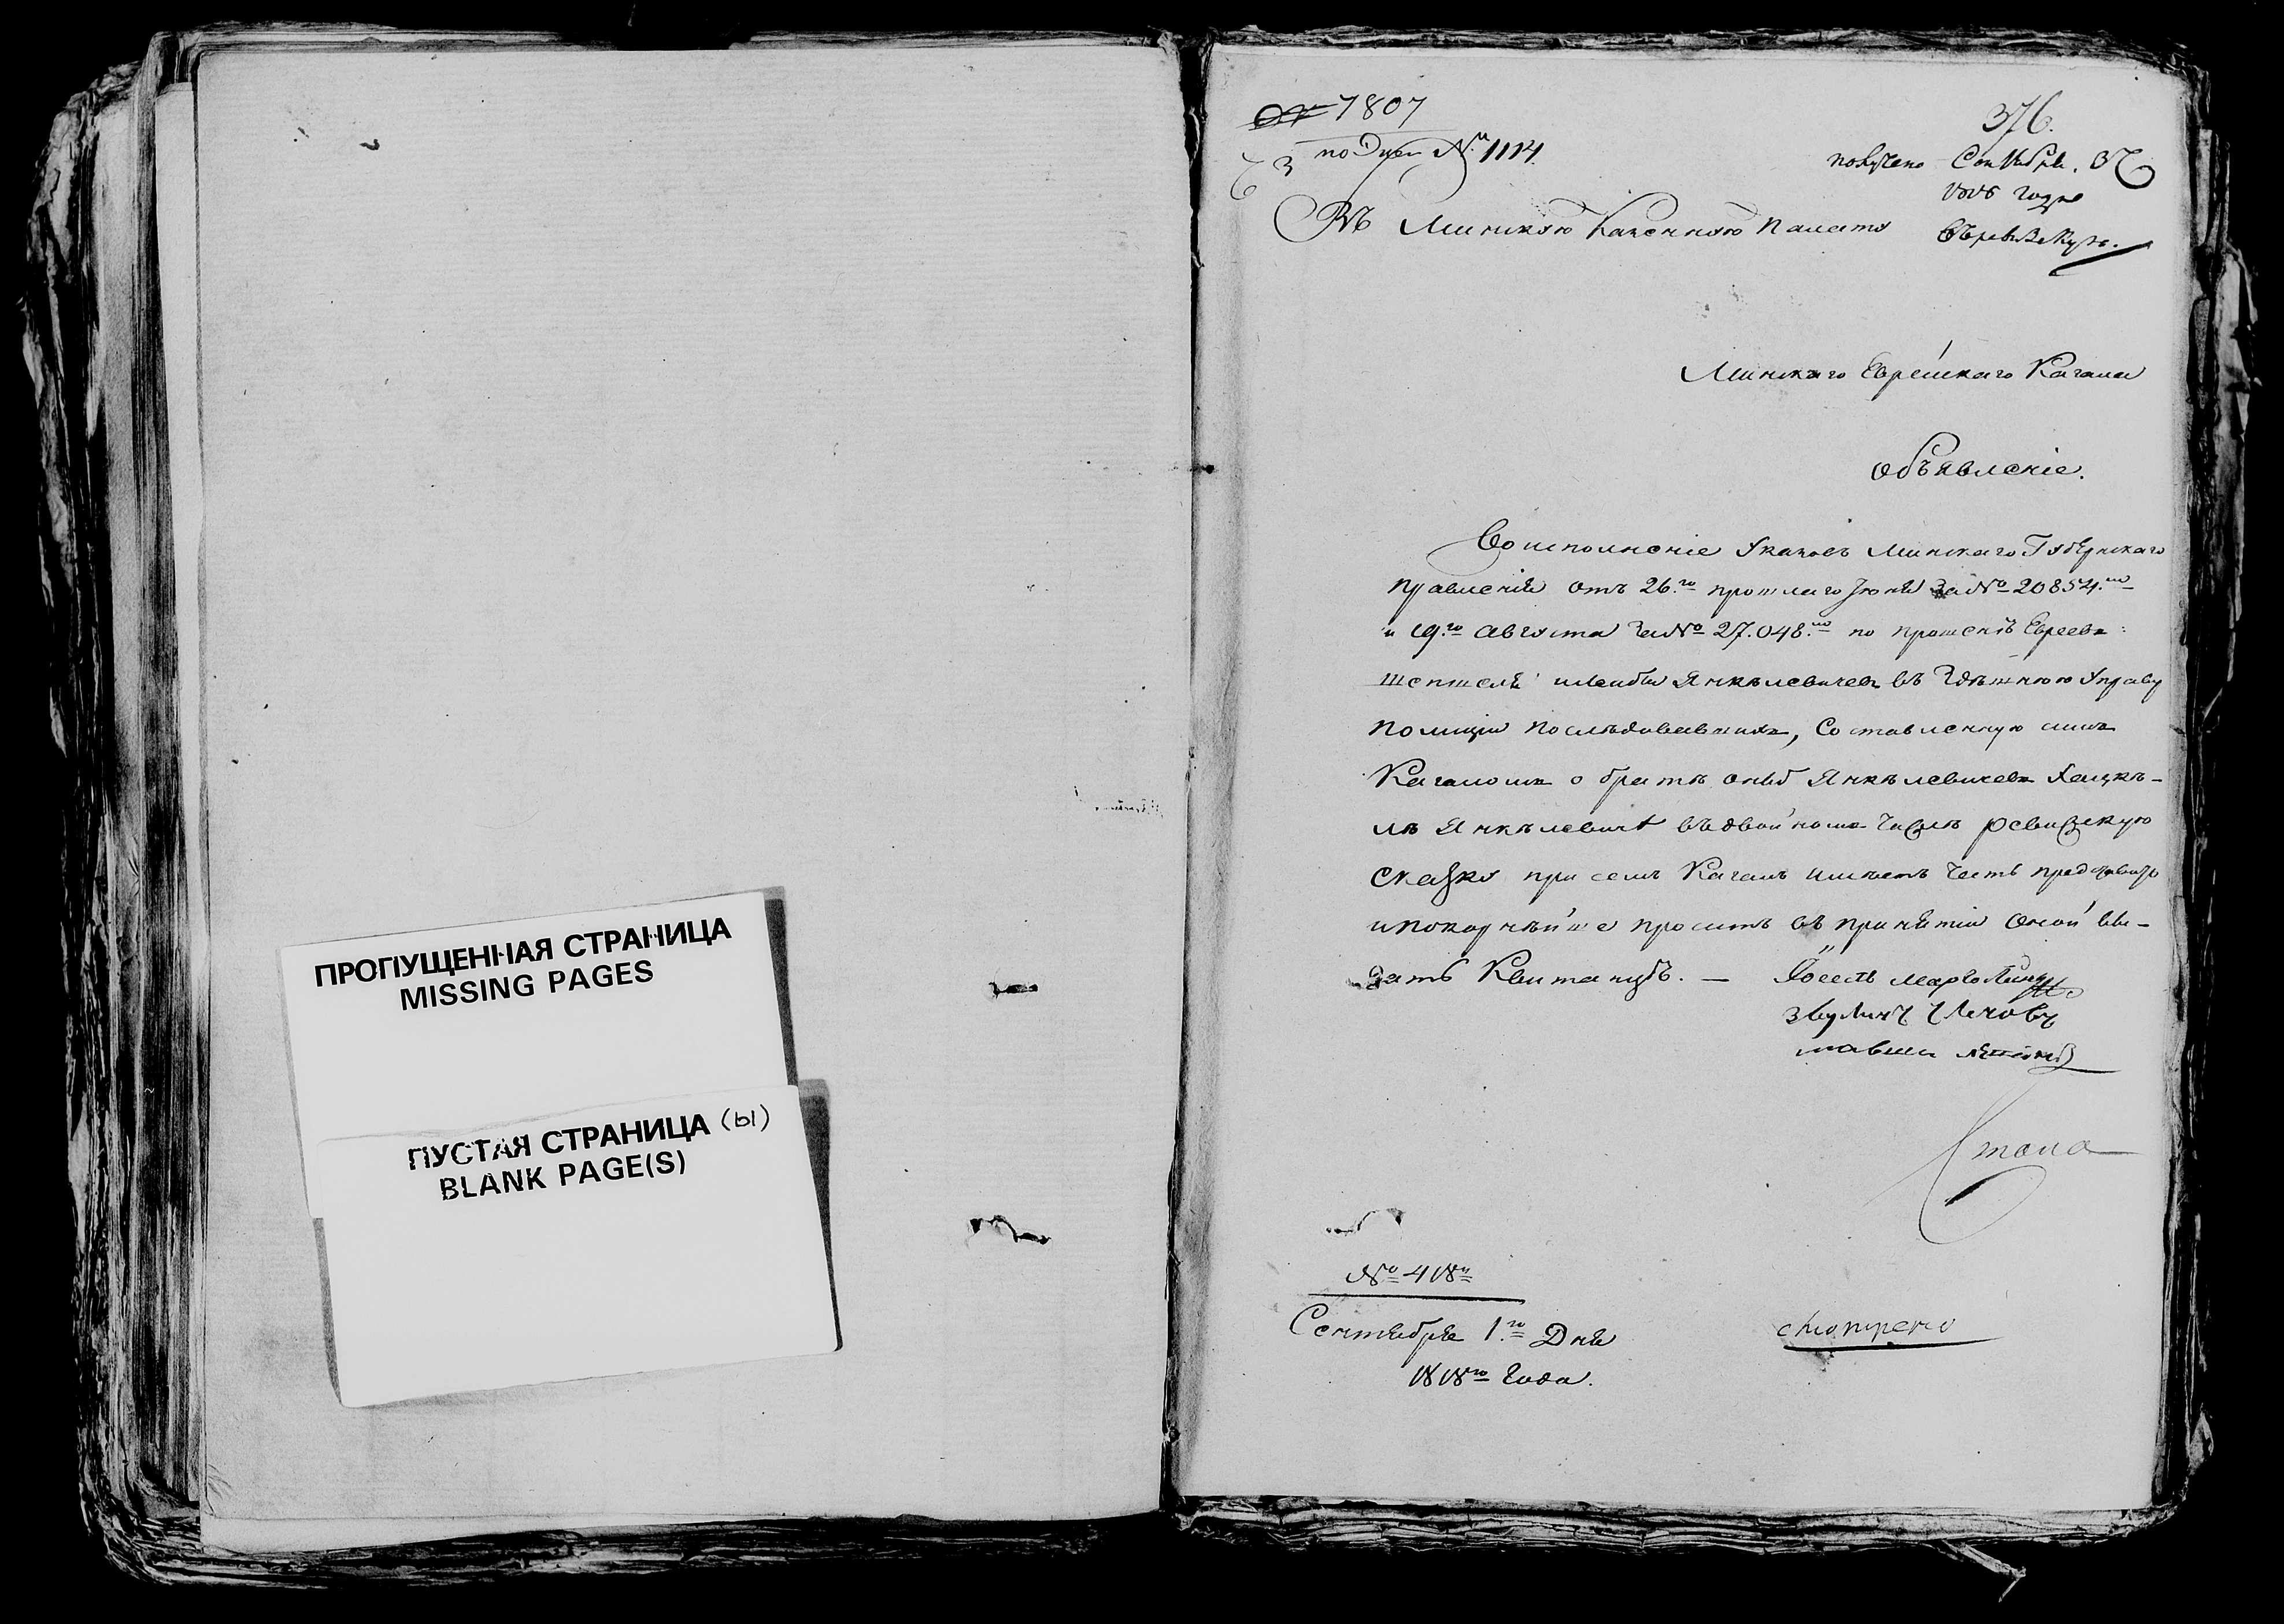 ПРОПУЩЕННАЯ СТРАНИЦА
MISSING PAGES
ПУСТАЯ СТРАНИЦА (ы)
BLANK PAGE(S)
1807
376.
№ 1114
получено Сентября. 3го
1818 года
Въ Минскую Казенную Палату
Минскаго Еврейскаго Кагала
Объявленіе.
Во исполненіе Указовъ Минскаго Губернскаго
Правленія отъ 26.го прошлаго Іюня За № 20854.мъ
и 19.го Августа За № 27.048.мъ по прошенію Евреевъ
Шепшеля Лейбы Янкелевичевъ въ Здѣшнюю Управу
Полиціи послѣдовавшихъ, Составленную симъ
Кагаломъ о братѣ оныхъ Янкелевичевъ Хацкѣ-
лѣ Янкелевичѣ въ двойномъ числѣ ревизскую
Сказку при семъ Кагалъ имѣетъ честь представить
и покорнѣйше проситъ въ принятіи оной вы-
дать Квитанцію. —
№ 418й
Сентября 1.го Дня
1818го Года.